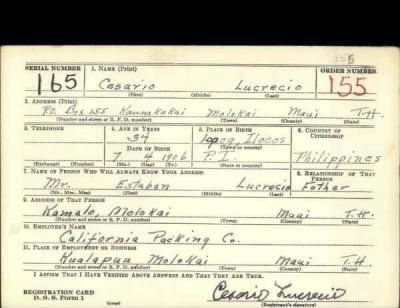 155
SERIAL NUMBER 1. NAME (Print) ORDER NUMBER
165 Cesario Lucrecio 155
(First) (Middle) (Last)
2. ADDRESS (Print)
P.O. Box 155 Kaunakakai Molokai Maui T.H.
(Number and street or R. F. D. number) (Town) (County) (State)
3. TELEPHONE 4. AGE IN YEARS 5. PLACE OF BIRTH 6. COUNTRY OF CITIZENSHIP
34 Ilocos
DATE OF BIRTH (Town or county)
7 4 1906 P.I. Philippines
(Exchange) (Number) (Mo.) (Day) (Yr.) (State or country)
7. NAME OF PERSON WHO WILL ALWAYS KNOW YOUR ADDRESS 8. RELATIONSHIP OF THAT PERSON
Mr. Estaban Lucrecio Father
(Mr., Mrs., Miss) (First) (Middle) (Last)
9. ADDRESS OF THAT PERSON
Kamalo, Molokai Maui T.H.
(Number and street or R. F. D. number) (Town) (County) (State)
10. EMPLOYER'S NAME
California Packing Co.
11. PLACE OF EMPLOYMENT OR BUSINESS
Kualapuu Molokai Maui T.H.
(Number and street or R. F. D. number) (Town) (County) (State)
I AFFIRM THAT I HAVE VERIFIED ABOVE ANSWERS AND THAT THEY ARE TRUE.
REGISTRATION CARD
D. S. S. Form 1 Cesario Lucrecio
(Registrant's signature)